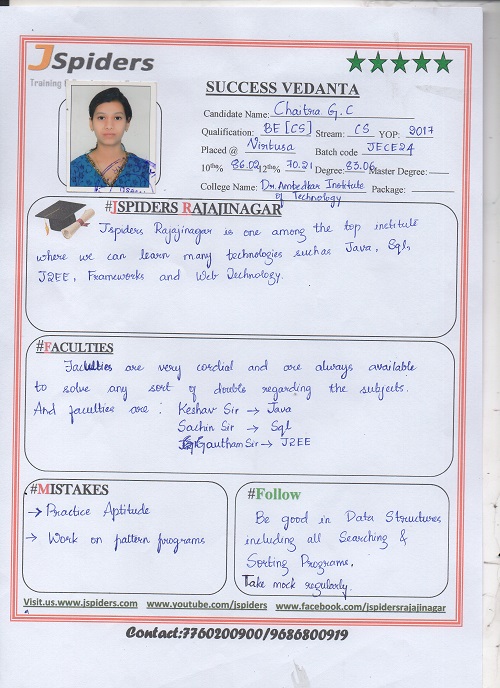 JSpiders
Training &
SUCCESS VEDANTA
Candidate Name: Chaitra G.C
Qualification: BE [CS] Stream: CS YOP: 2017
Placed @ Virtusa Batch code JECE24
10th% 86.02 12th% 70.21 Degree: 83.06 Master Degree:
College Name: Dr. Ambedkar Institute of Technology Package:
#JSPIDERS RAJAJINAGAR
Jspiders Rajajinagar is one among the top institute
where we can learn many technologies such as Java, Sql,
J2EE, Frameworks and Web Technology.
#FACULTIES
Faculties are very cordial and are always available
to solve any sort of doubts regarding the subjects.
And faculties are : Keshav Sir → Java
Sachin Sir → Sql
Gautham Sir → J2EE
#MISTAKES
→ Practice Aptitude
→ Work on pattern programs
#Follow
Be good in Data Structures
including all Searching &
Sorting Programs,
Take mock regularly.
Visit.us.www.jspiders.com www.youtube.com/jspiders www.facebook.com/jspidersrajajinagar
Contact:7760200900/9686800919